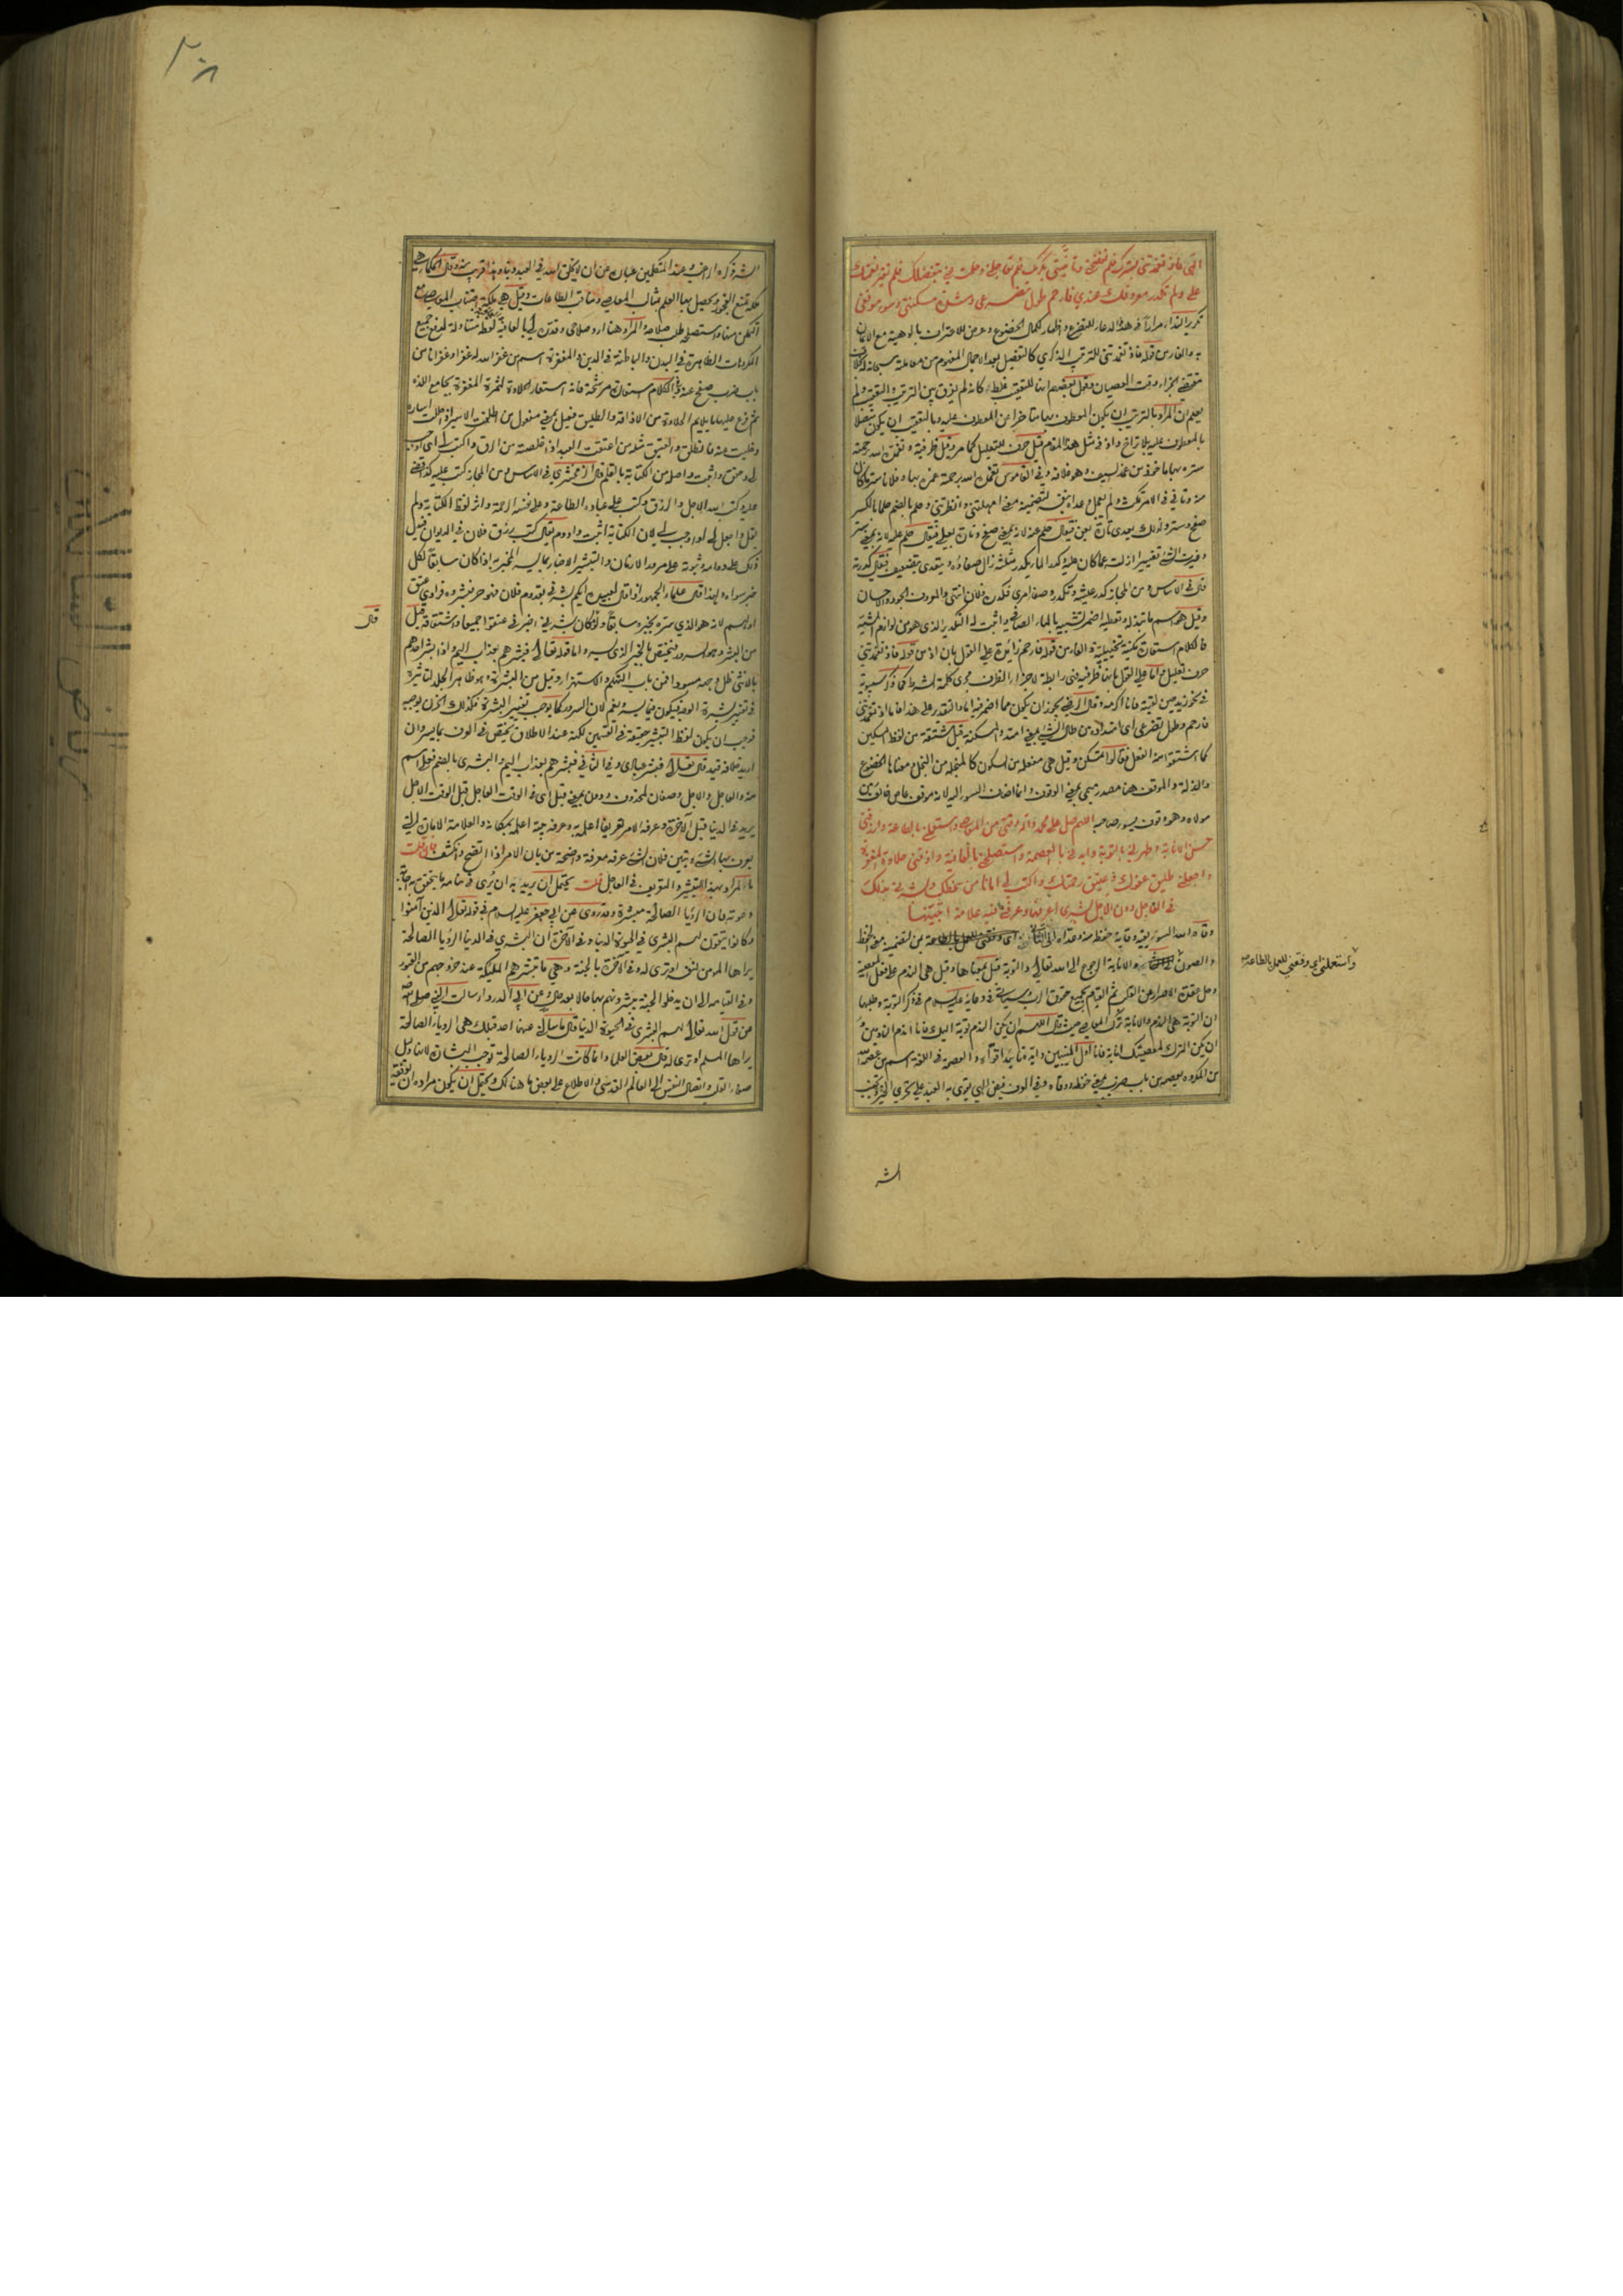 الهي فاذ قد تغمدتني بسترك فلم تفضحني وتأنيتني بكرمك فلم تعاجلني وحلمت عني بتفضلك فلم تغير نعمتك
علي ولم تكدر معروفك عندي فارحم طول تضرعي وشدة مسكنتي وسوء موقفي
تكرير النداء مرارا في هذا الدعاء للتضرع واظهار كمال الخضوع وعرض للاعتراف بالوهيته مع الايمان
به والفاء من قوله فاذ قد تغمدتني للترتيب الذكري كالتفصيل بعد الاجمال المفهوم من معاملته سبحانه له بخلاف
مقتضى الجزاء وقت العصيان وجعل بعضهم اياها للتعقيب غلط كانه لم يفرق بين الترتيب والتعقيب ولم
يعلم ان المراد بالترتيب ان يكون المعطوف بها متاخرا عن المعطوف عليه وبالتعقيب ان يكون متصلا
بالمعطوف عليه بلا تراخ واذ في مثل هذا المقام قيل حرف للتعليل كما مر وقيل ظرفية وتغمده الله برحمته
ستره بها ماخوذ من غمد السيف وهو غلافه وفي القاموس تغمده الله برحمته غمره بها وفلانا ستر ما كان
منه وتأنى في الامر تمكث ولم يعجل وعداه بنفسه لتضمينه معنى امهلتني وانظرتني وحلم بالضم حلما بالكسر
صفح وستر ولذلك يعدى تارة بعن فيقال حلم عنه لانه بمعنى صفح وتارة بعلى فيقال حلم عليه لانه بمعنى ستر
وغيرت الشيء تغييرا ازلته عما كان عليه وكدر الماء يكدر مثلثة زال صفاؤه ويتعدى بتضعيف فيقال كدرته
قال في الاساس ومن المجاز كدر عيشه وتكدر وصفا امري فكدره فلان انتهى والمعروف الجود والاحسان
وقيل هو اسم ما تبذله وتعطيه اضمر تشبيهه بالماء الصافي واثبت له التكدير الذي هو من لوازم المشبه
فالكلام استعارة مكنية تخييلية والفاء من قوله فارحم زائدة على القول بان اذ من قوله فاذ قد تغمدتني
حرف تعليل واما على القول بانها ظرفية فهي رابطة لاجراء الظرف مجرى كلمة الشرط كما ذكره سيبويه
في نحو زيد حين لقيته فانا اكرمه وقال الرضي يجوز ان يكون مما اضمر فيه اما والتقدير على هذا فاما اذ تغمدتني
فارحم وطول تضرعي اي امتداده من طال الشيء بمعنى امتد والمسكنة قيل مشتقة من لفظ المسكين
كما اشتقوا منه الفعل فقالوا تمسكن وقيل هي مفعلة من السكون كالمبخلة من البخل ومعناها الخضوع
والذلة والموقف هنا مصدر ميمي بمعنى الوقوف وانما اضاف السوء اليه لانه موقف عاص خالف
مولاه وهو وقوف يسوء صاحبه اللهم صل على محمد وآله وقني من المعاصي واستعملني بالطاعة وارزقني
حسن الانابة وطهرني بالتوبة وايدني بالعصمة واستصلحني بالعافية واذقني حلاوة المغفرة
واجعلني طليق عفوك وعتيق رحمتك واكتب لي امانا من سخطك وبشرني بذلك
في العاجل دون الآجل بشرى اعرفها وعرفني فيه علامة اتبينها
وقاه الله السوء يقيه وقاية حفظه منه وعداه الى الثاني بمن لتضمينه معنى الحفظ
والصون والانابة الرجوع الى الله تعالى والتوبة قيل بمعناها وقيل هي الندم على فعل المعصية
وحل عقدة الاصرار عن القلب ثم القيام بجميع حقوق الرب وسياتي في دعائه عليه السلام في ذكر التوبة وطلبها
ان التوبة هي الندم والانابة ترك المعاصي حيث قال اللهم ان يكن الندم توبة اليك فانا اندم النادمين و
ان يكن الترك لمعصيتك انابة فانا اول المنيبين وايده تاييدا قواه والعصمة في اللغة اسم من عصمه الله
من المكروه يعصمه من باب ضرب بمعنى حفظه ووقاه وفي العرف فيض الهي يقوى به العبد على تحري الخير وتجنب
واستعملني اي وفقني للعمل بالطاعة
الشر
٢٠٨
الشر ذكره الراغب وعند المتكلمين عبارة عن ان لا يخلق الله في العبد ذنبا وقال الحكماء هي
ملكة تمنع الفجور ويحصل بها العلم بمثالب المعاصي ومناقب الطاعات وقيل هي ملكة اجتناب المعاصي مع
التمكن منها واستصلحه طلب صلاحه والمراد هنا ارد صلاحي وقدره لي بالعافية لفظ متناولة لدفع جميع
المكروهات الظاهرة في البدن والباطنة في الدين والمغفرة اسم من غفر الله له غفرا وغفرانا من
باب ضرب صفح عنه وفي الكلام استعارة مرشحة فانه استعار الحلاوة لثمرة المغفرة بجامع اللذة
ثم فرع عليها ما يلايم الحلاوة من الاذاقة والطليق فعيل بمعنى مفعول من اطلقت الاسير اذا حللت اساره
وخليت عنه فانطلق والعتيق مثله من اعتقت العبد اذا خلصته من الرق واكتب لي اي اوجب
لي وافرض واثبت واصله من الكتابة بالقلم قال الزمخشري في الاساس ومن المجاز كتب عليه كذا قضى
عليه وكتب الله الاجل والرزق وكتب على عباده الطاعة وعلى نفسه الرحمة واثر لفظ الكتابة ولم
يقل واجعل لي او اوجب لي لان الكتابة اثبت وادوم يقال كتب رزق فلان في الديوان فيدل
ذلك على دوامه وثبوته على مرور الازمان والتبشير الاخبار بما يسر المخبر به اذا كان سابقا لكل
خبر سواه ولهذا قال علماء الجمهور اذا قال لعبيده ايكم بشرني بقدوم فلان فهو حر فبشروه فرادى عتق
اولهم لانه هو الذي سره بخبره سابقا ولو كان بشرني اخبرني عتقوا جميعا واشتقاقه قيل
من البشر وهو السرور فيختص بالخبر الذي يسر واما قوله تعالى فبشرهم بعذاب اليم واذا بشر احدهم
بالانثى ظل وجهه مسودا فمن باب التهكم والاستهزاء وقيل من البشرة وهو ظاهر الجلد لتاثيره
في تغيير بشرة الوجه فيكون فيما يسر ويغم لان السرور كما يوجب تغيير البشرة فكذلك الحزن يوجبه
فوجب ان يكون لفظ التبشير حقيقة في القسمين لكنه عند الاطلاق يختص في العرف بما يسر وان
اريد خلافه قيد قال تعالى فبشر عبادي وفي الثاني فبشرهم بعذاب اليم والبشرى بالضم فعلى اسم
منه والعاجل والآجل وصفان لمحذوف ودون بمعنى قبل اي في الوقت العاجل قبل الوقت الآجل
يريد في الدنيا قبل الآخرة وعرفه الامر تعريفا اعلمه وعرفه بيته اعلمه بمكانه والعلامة الامارة التي
يعرف بها الشيء وتبين فلان الشيء عرفه معرفة واضحة من بان الامر اذا اتضح وانكشف فان قلت
ما المراد بهذا التبشير والتعريف في العاجل قلت يحتمل ان يريد به ان يرى في منامه ما يتحقق به اجابة
دعوته فان الرؤيا الصالحة مبشرة وقد روي عن ابي جعفر عليه السلام في قوله تعالى الذين آمنوا
وكانوا يتقون لهم البشرى في الحيوة الدنيا وفي الآخرة ان البشرى في الدنيا الرؤيا الصالحة
يراها المؤمن لنفسه او ترى له وفي الآخرة بالجنة وهي ما تبشرهم الملائكة عند خروجهم من القبور
وفي القيامة الى ان يدخلوا الجنة يبشرونهم بها حالا بعد حال وعن ابي الدرداء سالت النبي صلى الله عليه
عن قول الله تعالى لهم البشرى في الحيوة الدنيا قال ما سالني عنها احد قبلك هي الرويا الصالحة
يراها المسلم او ترى له قال بعض العلماء وانما كانت الرويا الصالحة توجب البشارة لانها دليل
صفاء القلب واتصال النفس الى العالم القدسي والاطلاع على بعض ما هنالك ويحتمل ان يكون مراده ان يوفقه
قال
رياض السالكين